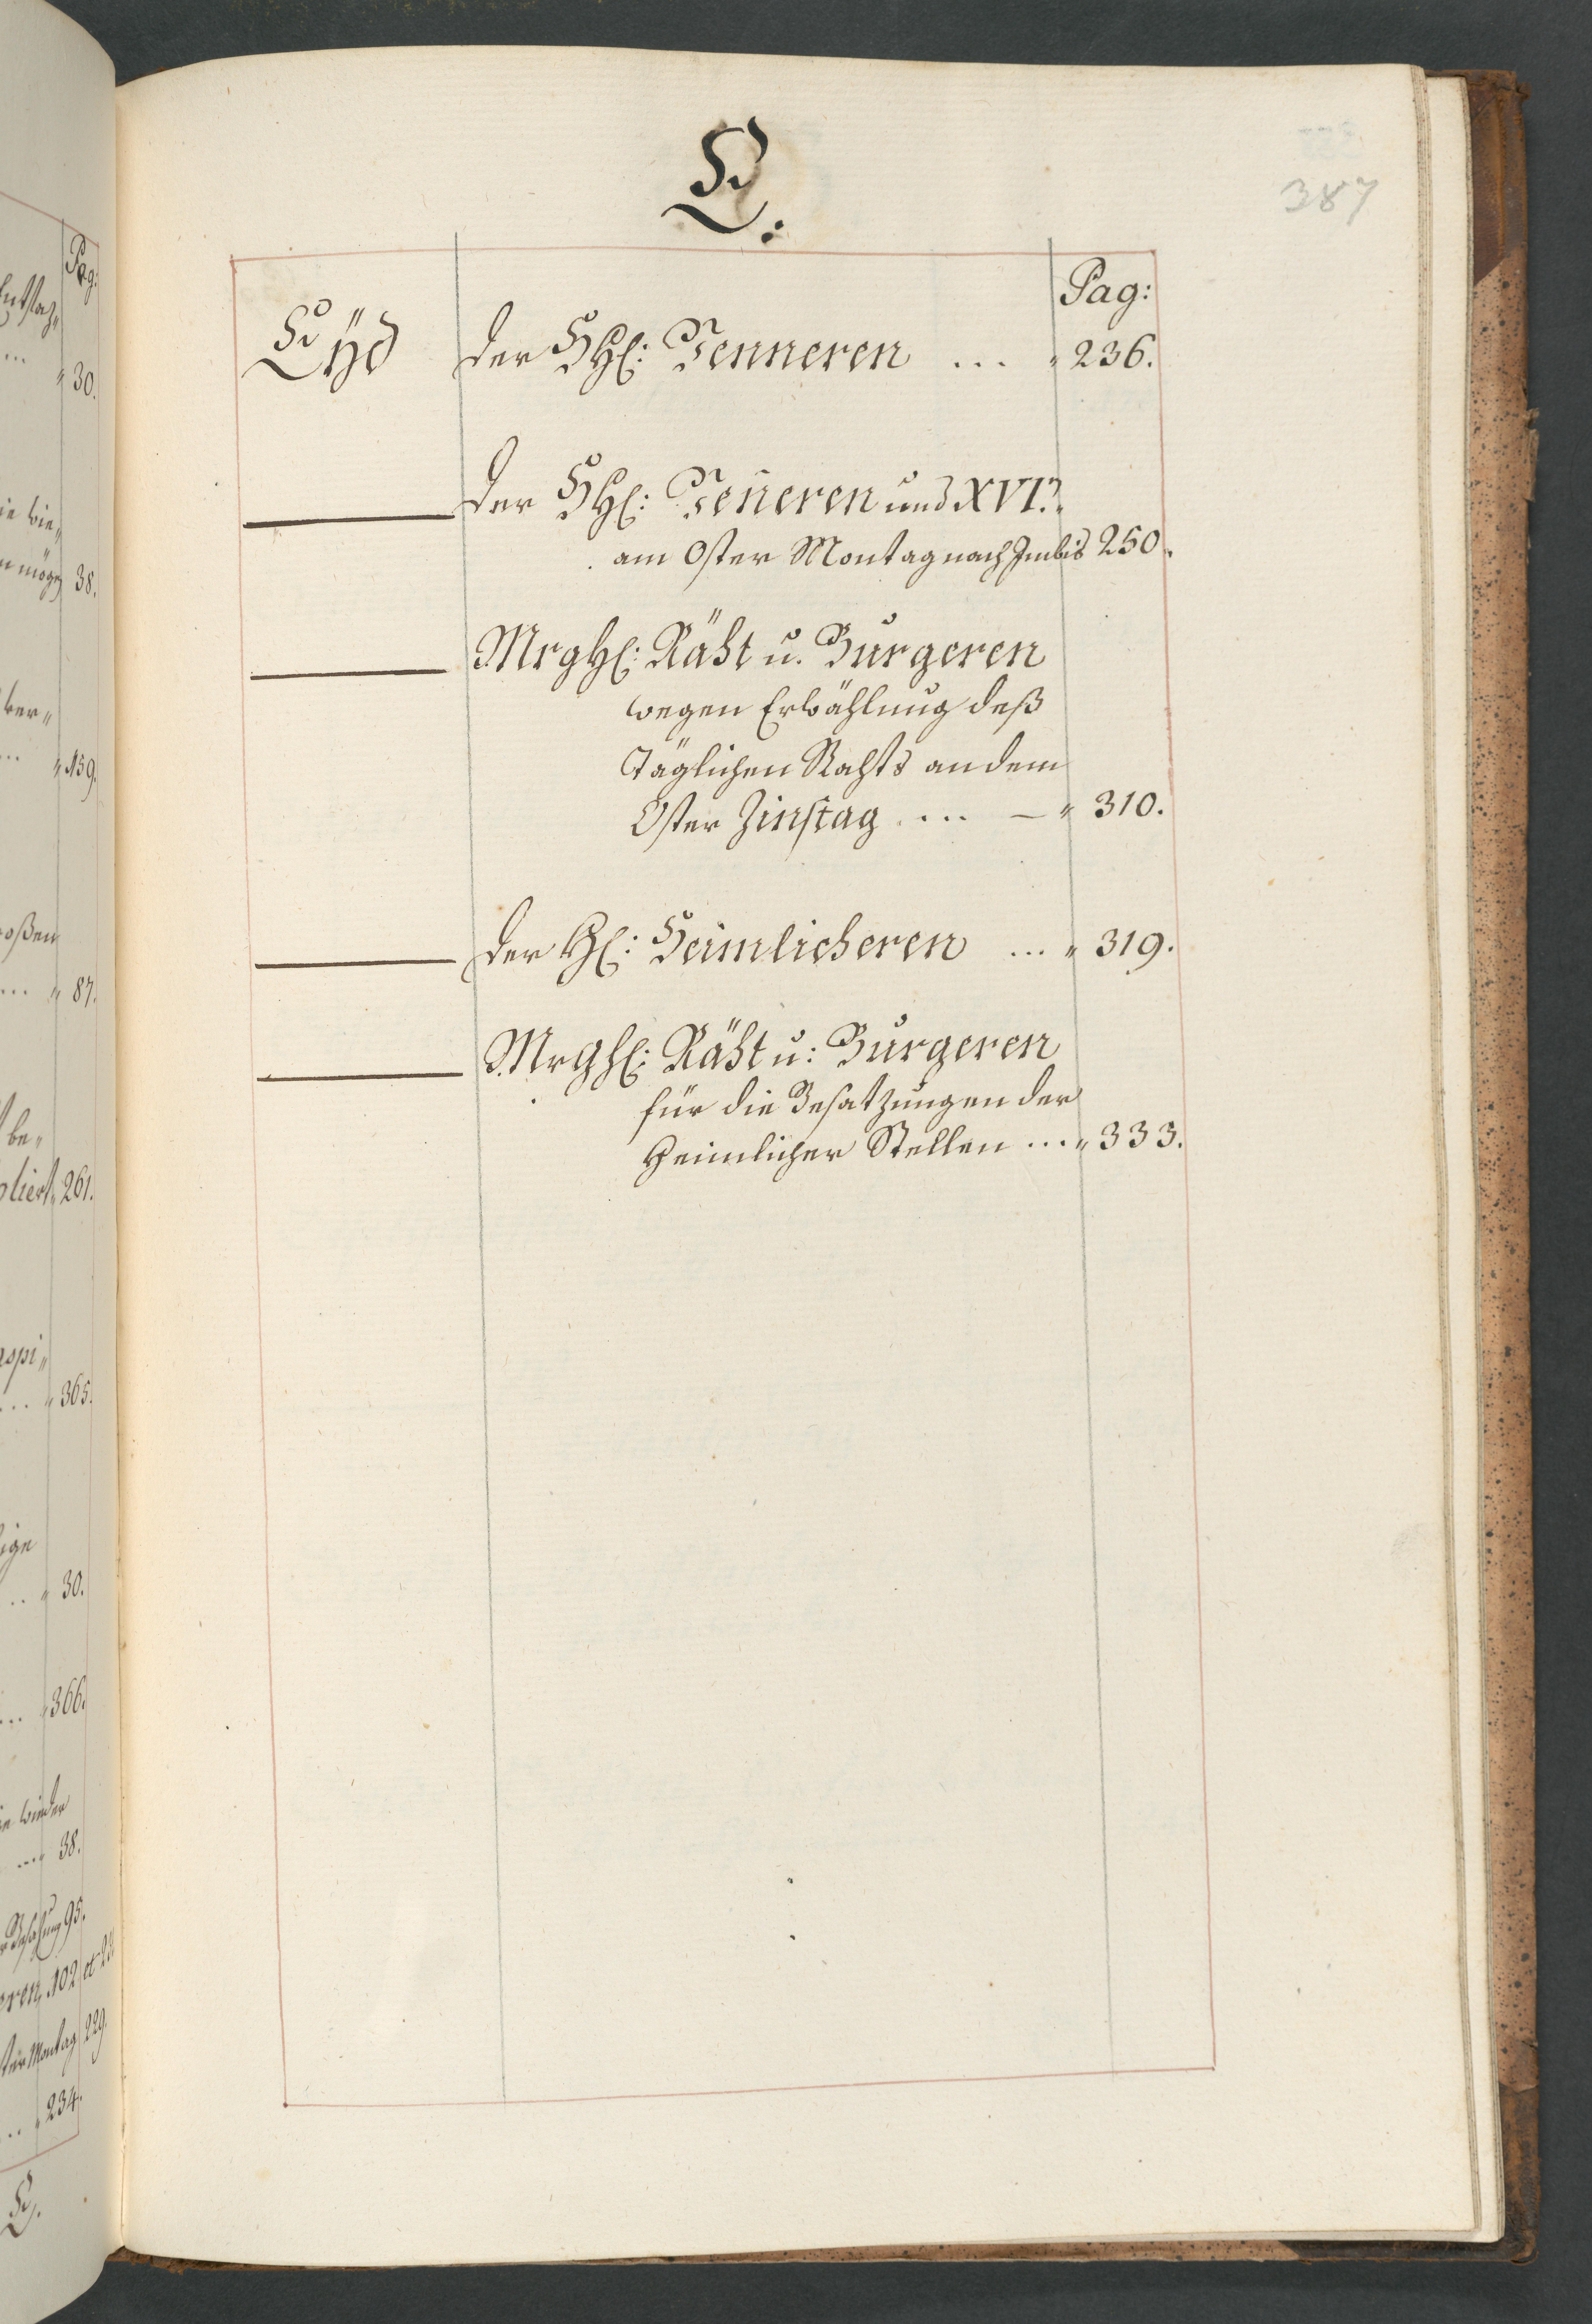 E.
387
Pag:
Eÿd der HHℓ: Venneren ... " 236.
der HHℓ: Veñeren und XVI.
am Oster Montag nach Imbis 250.
MrgHℓ: Räht u. Burgeren
wegen Erwählung deß
Täglichen Rahts an dem
Oster Zinstag .... — " 310.
der Hℓ: Heimlicheren ... " 319.
MrgHℓ: Räht u: Burgeren
für die Besatzungen der
Heimlicher Stellen ... " 333.
Pag:
... " 30.
38.
... " 159.
oßen
... " 87.
be„
261.
... " 365.
... " 30.
... " 366.
38.
95.
102 et
Montag 229.
... " 234.
E.